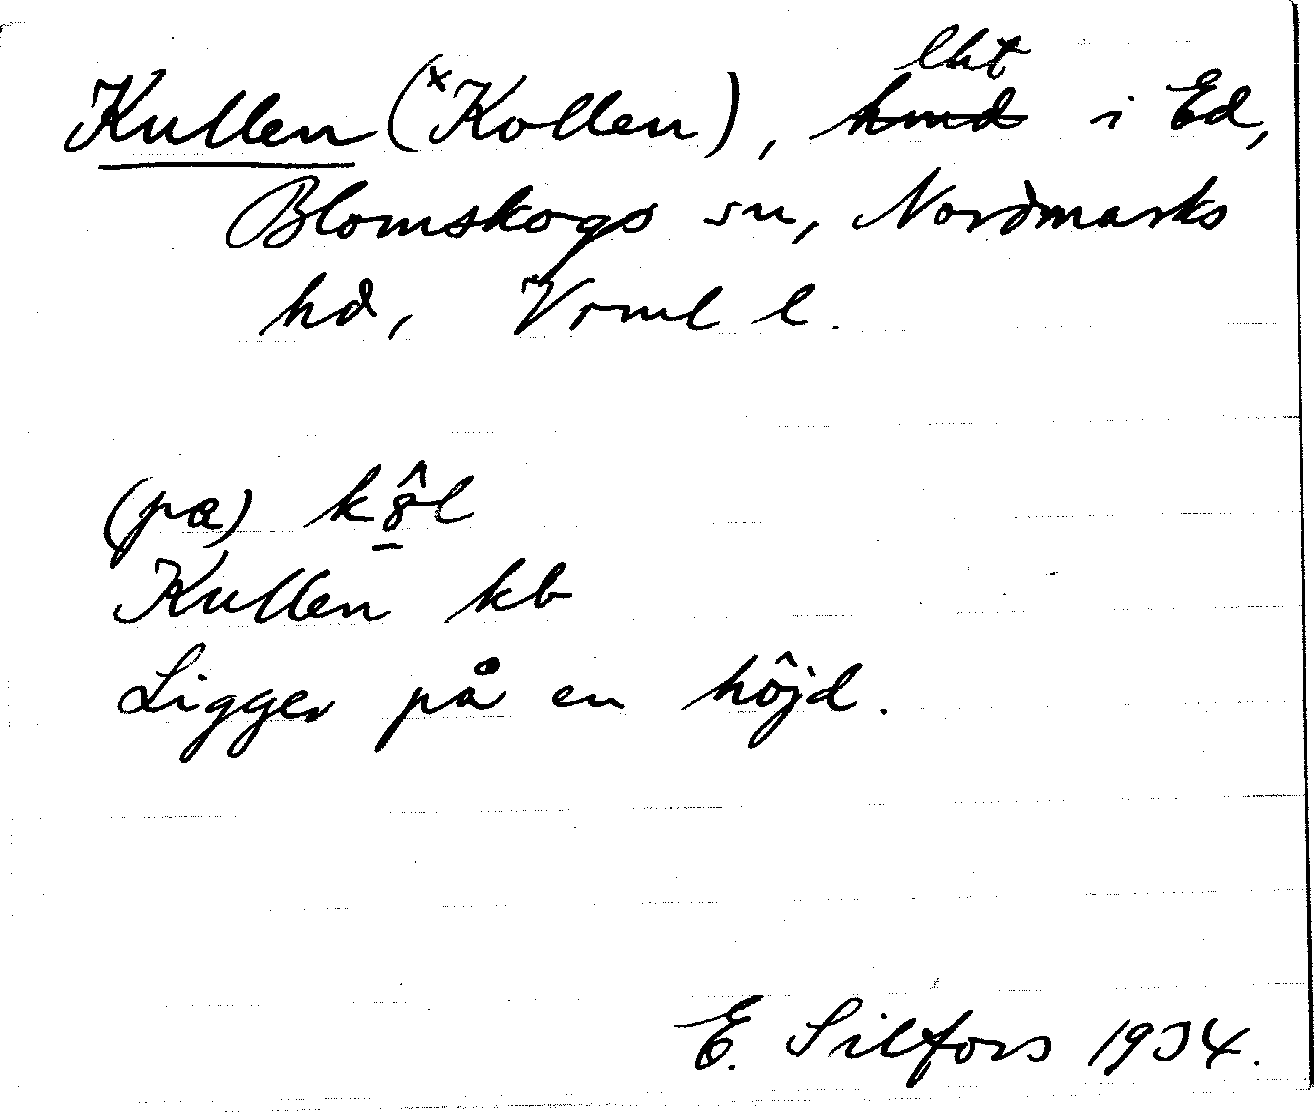 Kullen (ˣKollen), lht i Ed,
Blomskogs sn, Nordmarks
hd, Vrml l.
(pa) kȣ̂l
Kullen kb
Ligger på en höjd.
E. Silfors 1934.